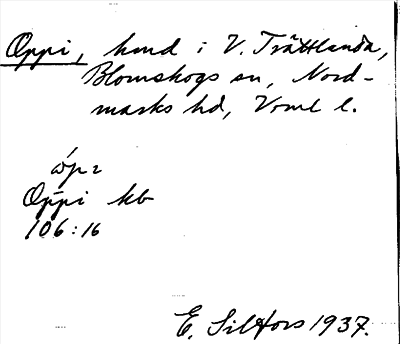 Oppi, hmd i V. Trättlanda,
Blomskogs sn, Nord-
marks hd, Vrml l.
Oppi kb
106:16
E. Silfors 1937.